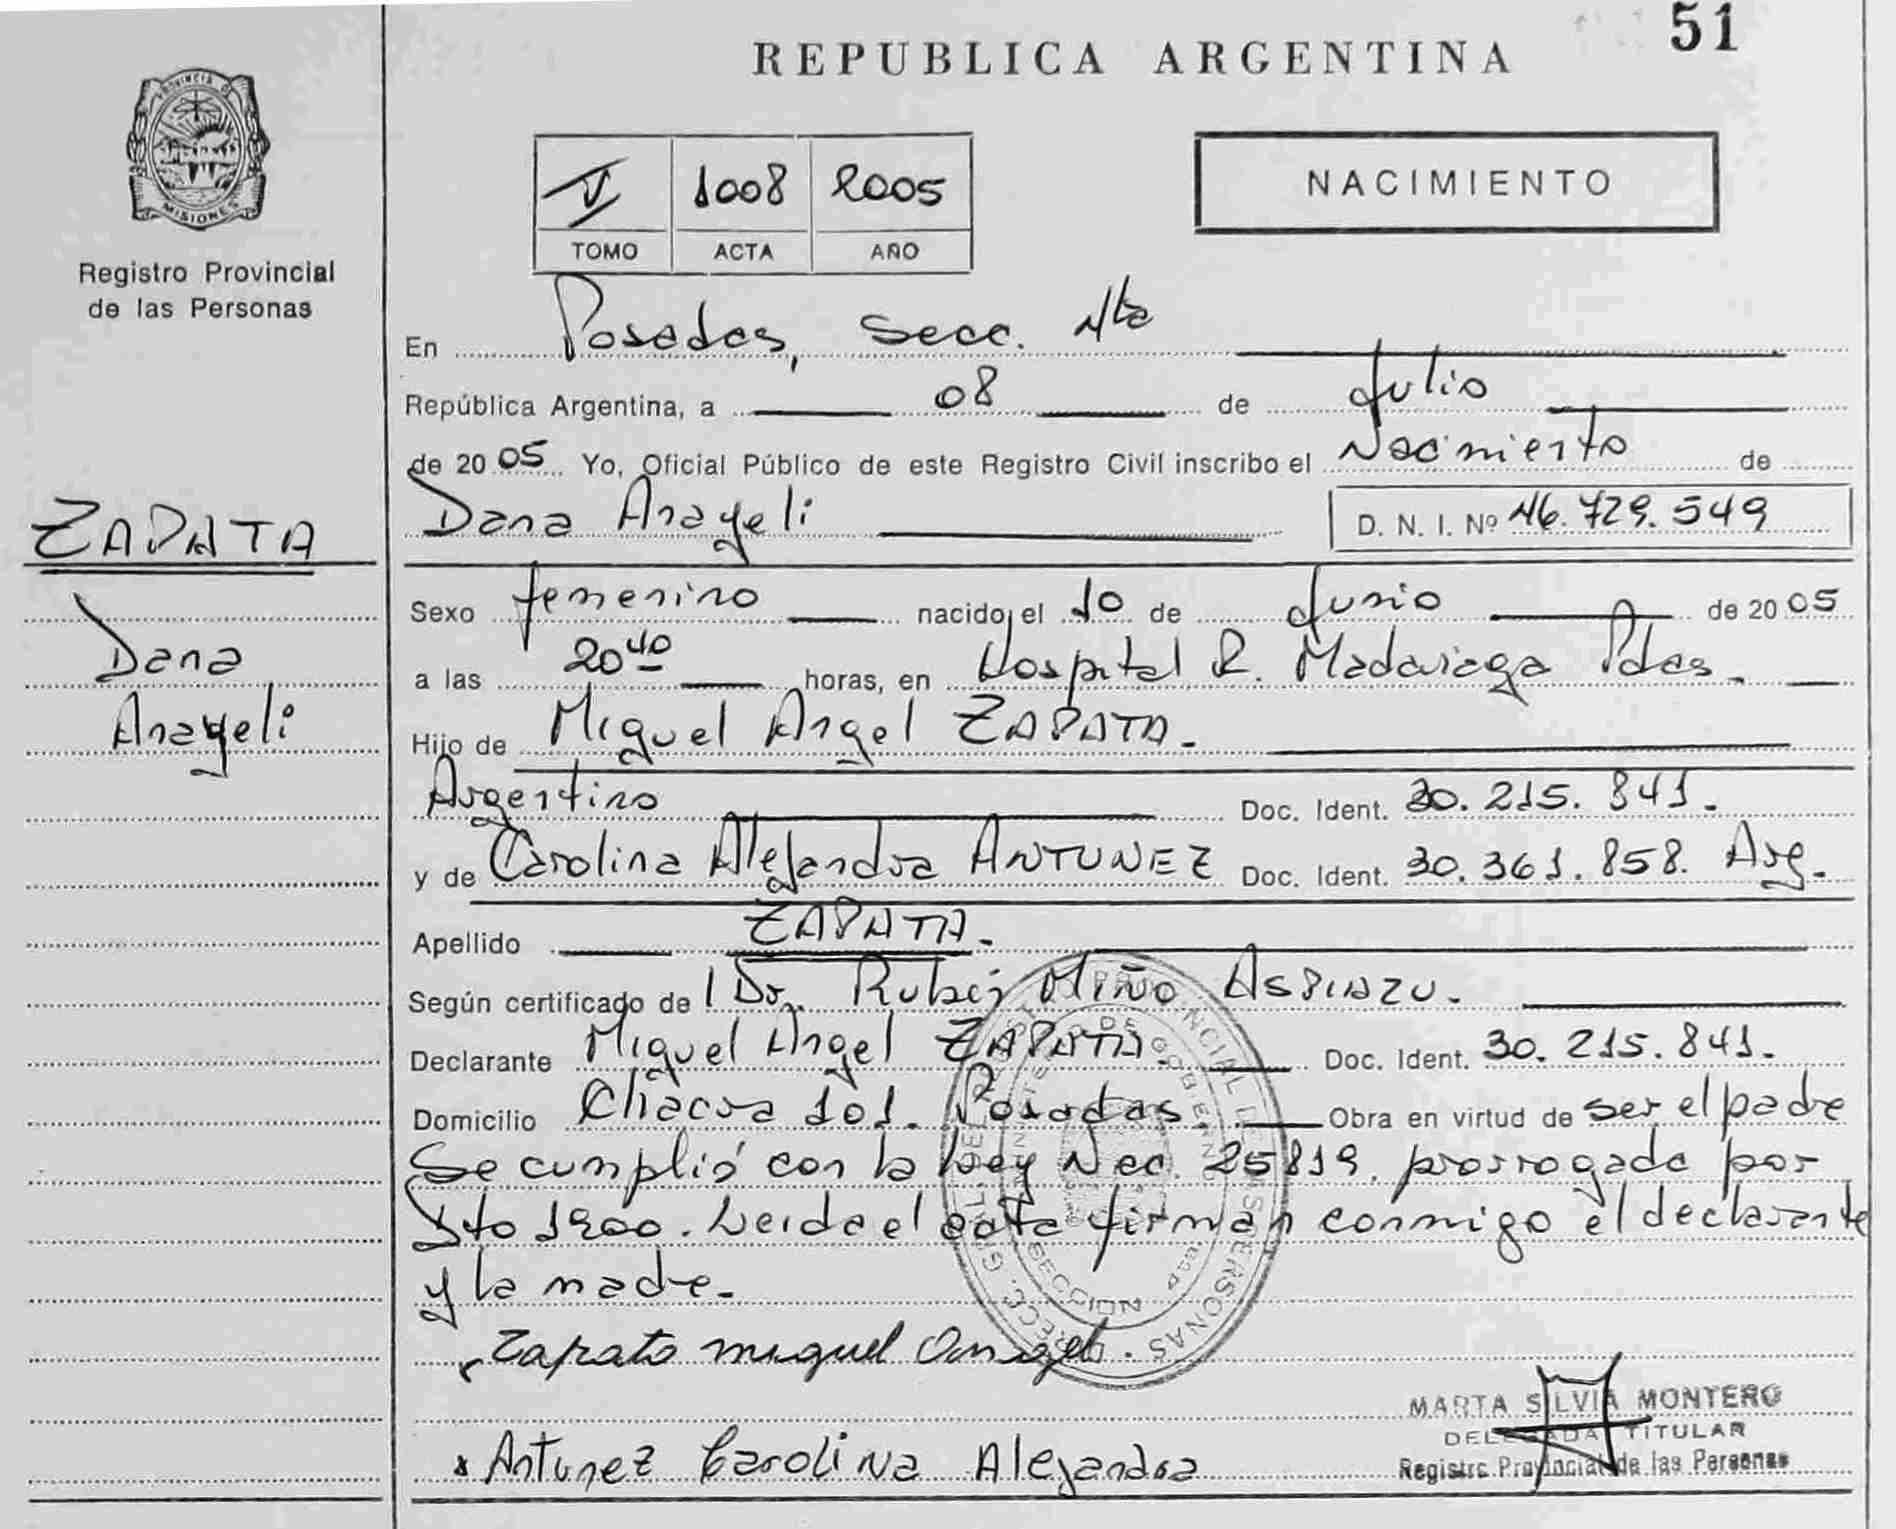 51
REPUBLICA ARGENTINA
PROVINCIA DE
MISIONES
Registro Provincial
de las Personas
V 1008 2005
TOMO ACTA AÑO
NACIMIENTO
En Posadas, Secc. 4ta
República Argentina, a 08 de Julio
de 2005 Yo, Oficial Público de este Registro Civil inscribo el Nacimiento de
Dana Anayeli D. N. I. Nº 46.729.549
ZAPATA
Dana
Anayeli
Sexo femenino nacido el 10 de Junio de 2005
a las 20 40 horas, en Hospital R. Madariaga Pdas.
Hijo de Miguel Angel ZAPATA.
Argentino Doc. Ident. 30.215.841.
y de Carolina Alejandra ANTUNEZ Doc. Ident. 30.361.858. Arg.
Apellido ZAPATA.
Según certificado de Dr. Rubén Miño Aspiazu.
Declarante Miguel Angel ZAPATA. Doc. Ident. 30.215.841.
Domicilio Chacra 101. Posadas. Obra en virtud de ser el padre
Se cumplió con la Ley Nac. 25819. prorrogada por
Dto 1900. Leida el acta firman conmigo el declarante
y la madre.
Zapata miguel Angel.
Antunez Carolina Alejandra
MARTA SILVIA MONTERO
DELEGADA TITULAR
Registro Provincial de las Personas